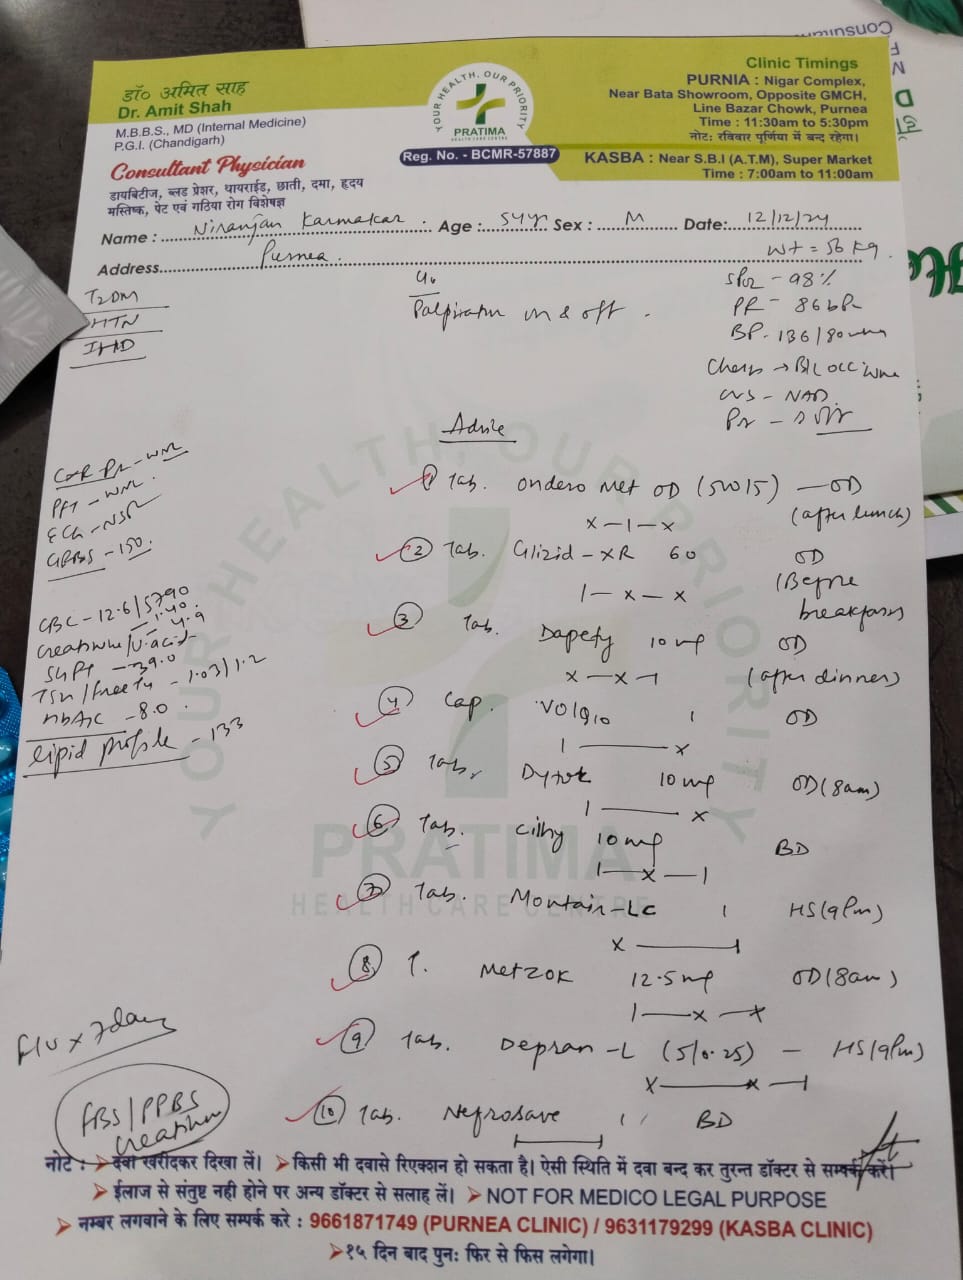 डॉ० अमित साह
Dr. Amit Shah
M.B.B.S., MD (Internal Medicine)
P.G.I. (Chandigarh)
Consultant Physician
डायबिटीज, ब्लड प्रेशर, थायराईड, छाती, दमा, हृदय
मस्तिष्क, पेट एवं गठिया रोग विशेषज्ञ
YOUR HEALTH, OUR PRIORITY
PRATIMA
HEALTH CARE CENTRE
Reg. No. - BCMR-57887
Clinic Timings
PURNIA : Nigar Complex,
Near Bata Showroom, Opposite GMCH,
Line Bazar Chowk, Purnea
Time : 11:30am to 5:30pm
नोट: रविवार पूर्णिया में बन्द रहेगा।
KASBA : Near S.B.I (A.T.M), Super Market
Time : 7:00am to 11:00am
Name : Niranjan Karmakar Age : 54yr Sex : M Date: 12/12/24
Address Purnea.
Wt = 56 kg.
T2DM
HTN
IHD
c/o
Palpitation on & off.
SPO2 - 98%
PR - 86 bpm
BP - 136/80 mm
Chest → B/L occ
CVS - NAD
Advice
CXR PA - WNL
PFT - WNL
ECG - NSR
GRBS - 150.
CBC - 12.6/5790
Creatinine/U.acid - 1.40/4.9
SGPT - 39.0
TSH/Free T4 - 1.03/1.2
HbA1c - 8.0
lipid profile - 133
1 Tab. Ondero Met OD (500/5) - OD
x-1-x (after lunch)
2 Tab. Glizid-XR 60 OD
1-x-x (Before breakfast)
3 Tab. 10 mg OD
x-x-1 (after dinner)
4 Cap. 1 OD
1-x
5 Tab. Dytor 10 mg OD (8am)
1-x
6 Tab. Cilny 10 mg BD
1-x-1
7 Tab. Montair-LC 1 HS (9pm)
x-1
8 T. Metzok 12.5 mg OD (8am)
1-x-x
9 Tab. Depran-L (5/0.25) - HS (9pm)
x-x-1
10 Tab. Nefrosave 1 BD
F/U x 7 days
FBS/PPBS
Creatinine
YOUR HEALTH, OUR PRIORITY
PRATIMA
HEALTH CARE CENTRE
नोट : ➤दवा खरीदकर दिखा लें। ➤किसी भी दवासे रिएक्शन हो सकता है। ऐसी स्थिति में दवा बन्द कर तुरन्त डॉक्टर से सम्पर्क करें।
➤ईलाज से संतुष्ट नही होने पर अन्य डॉक्टर से सलाह लें। ➤ NOT FOR MEDICO LEGAL PURPOSE
➤ नम्बर लगवाने के लिए सम्पर्क करे : 9661871749 (PURNEA CLINIC) / 9631179299 (KASBA CLINIC)
➤१५ दिन बाद पुनः फिर से फिस लगेगा।